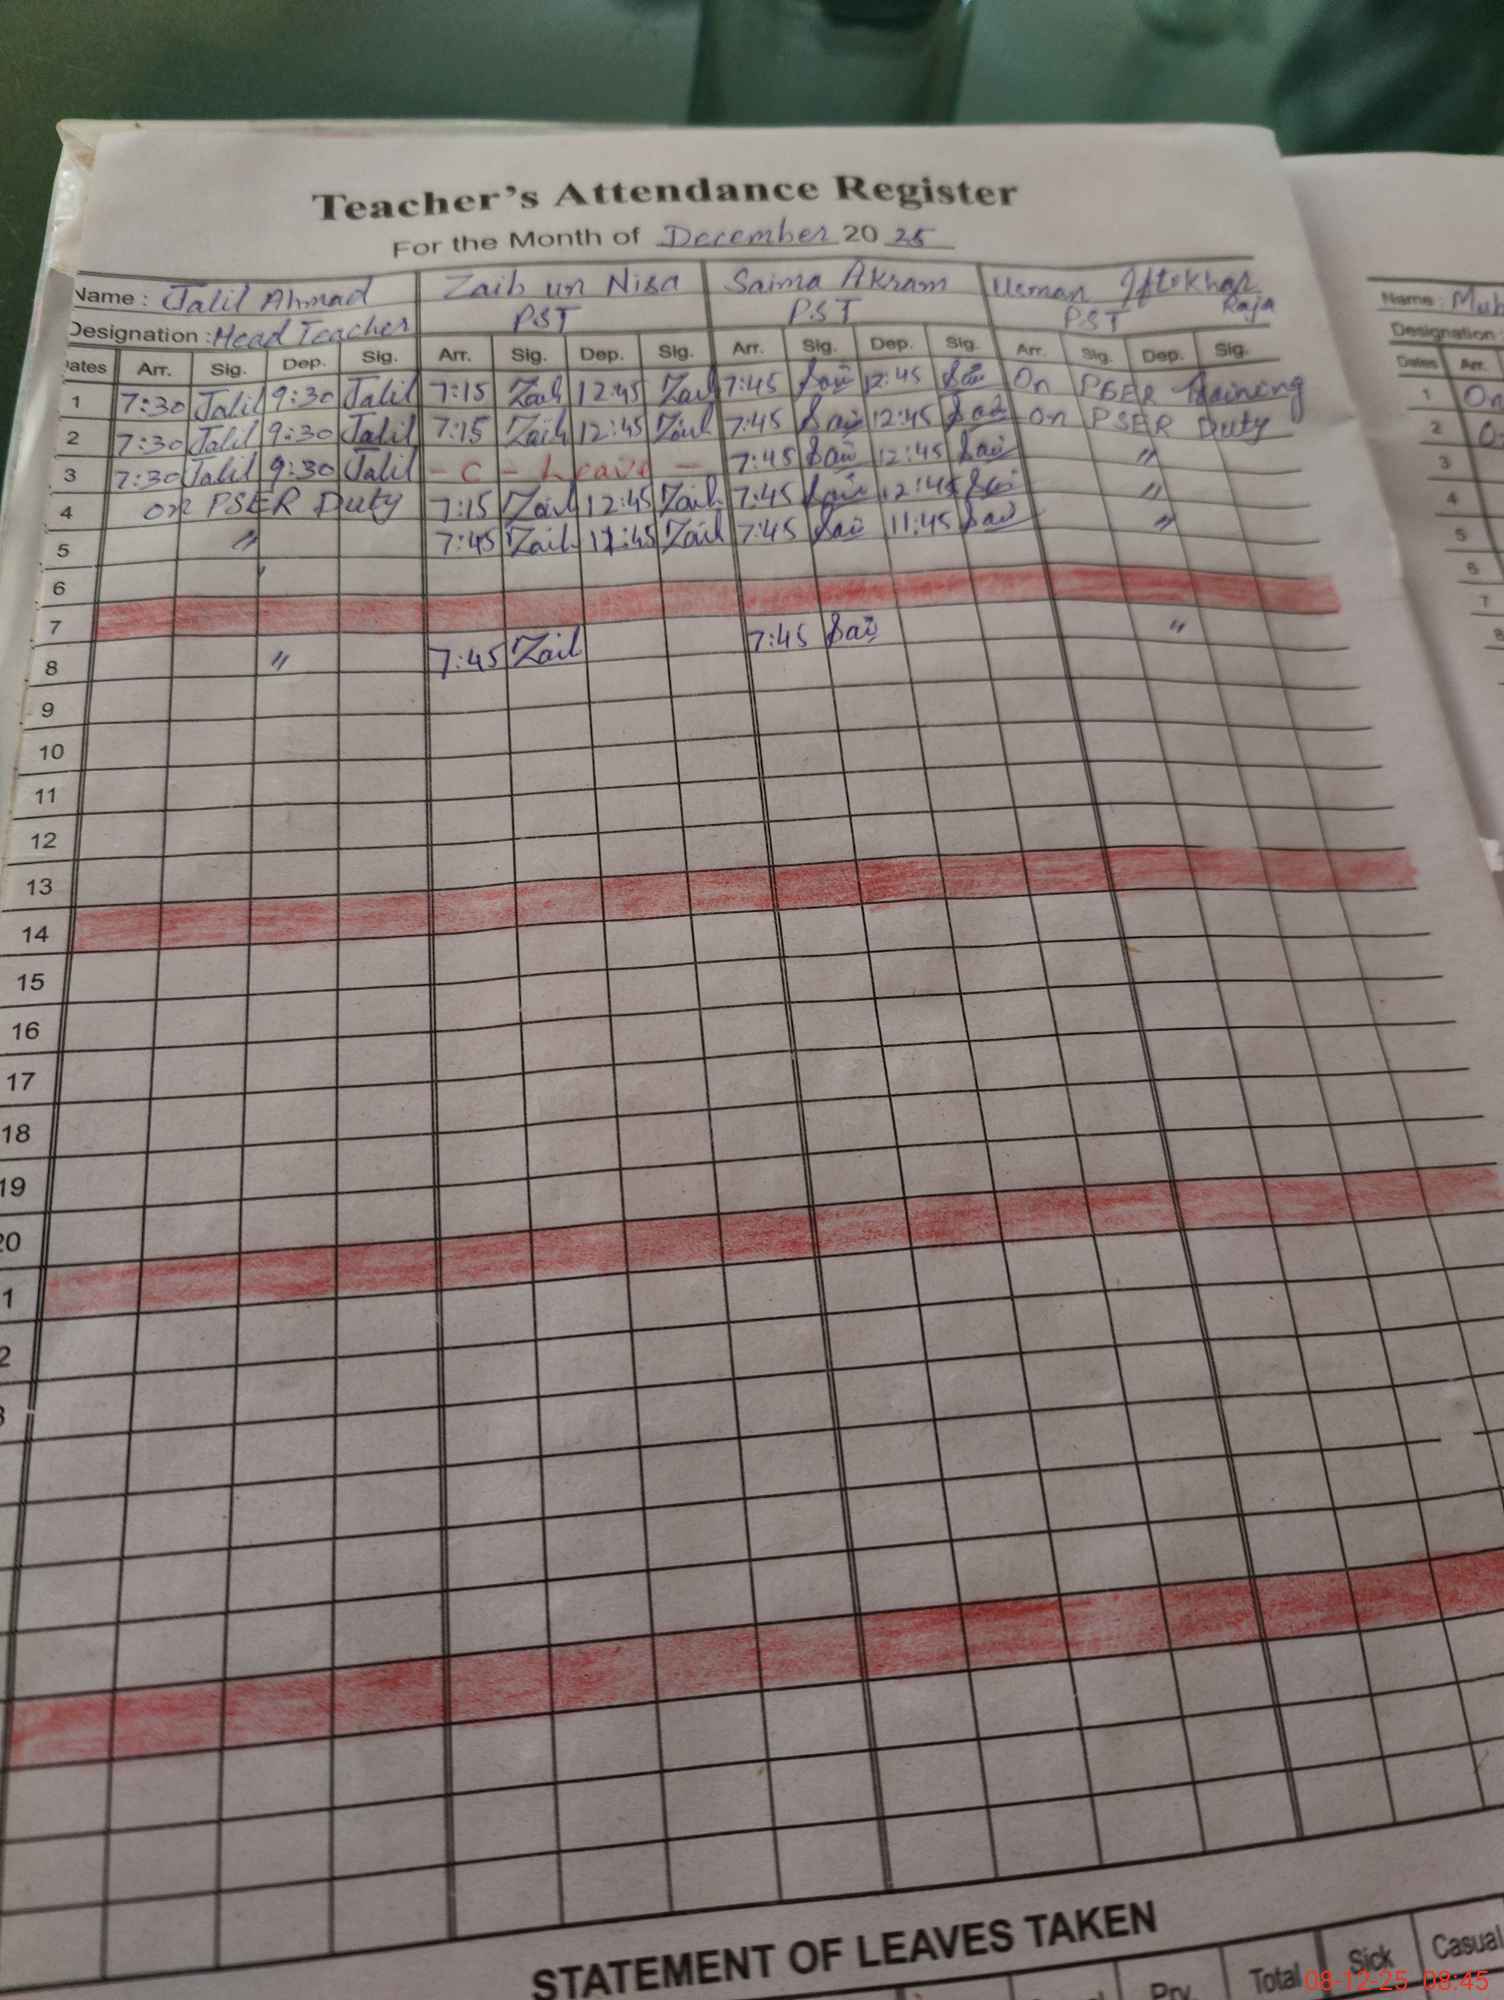 Teacher's Attendance Register
For the Month of December 2025
Name: Jalil Ahmad Zaib un Nisa Saima Akram Usman Iftekhar Raja
Designation: Head Teacher PST PST PST
Dates Arr. Sig. Dep. Sig. Arr. Sig. Dep. Sig. Arr. Sig. Dep. Sig. Arr. Sig. Dep. Sig.
1 7:30 Jalil 9:30 Jalil 7:15 Zaib 12:45 Zaib 7:45 Sai 12:45 Sai On PSER Training
2 7:30 Jalil 9:30 Jalil 7:15 Zaib 12:45 Zaib 7:45 Sai 12:45 Sai on PSER Duty
3 7:30 Jalil 9:30 Jalil - C - Leave - 7:45 Sai 12:45 Sai "
4 on PSER Duty 7:15 Zaib 12:45 Zaib 7:45 Sai 12:45 Sai "
5 " 7:45 Zaib 11:45 Zaib 7:45 Sai 11:45 Sai "
6
7
8 " 7:45 Zaib 7:45 Sai "
9
10
11
12
13
14
15
16
17
18
19
20
1
2
3
STATEMENT OF LEAVES TAKEN
Prv. Total Sick Casual
Name: Muh
Designation
Dates Arr.
1 On
2
3
4
5
6
7
08-12-25 08:45